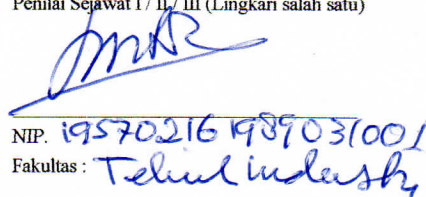 Penilai Sejawat I / II / III (Lingkari salah satu)
NIP. 19570216 198903 1001
Fakultas : Teknik Industri